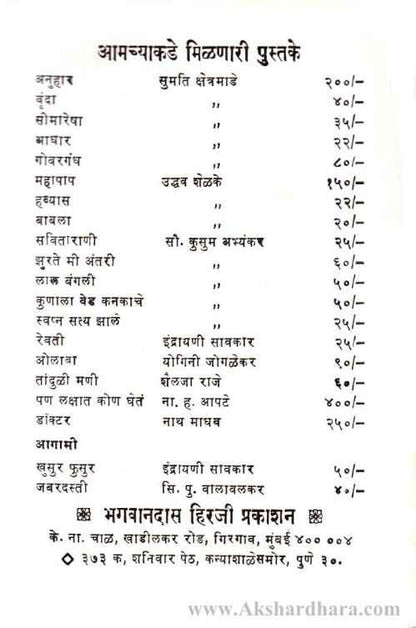 आमच्याकडे मिळणारी पुस्तके
अनुहार सुमति क्षेत्रमाडे २००/-
वृंदा ,, ४०/-
सीमारेषा ,, ३५/-
आधार ,, २२/-
गोवरगंध ,, ८०/-
महापाप उद्धव शेळके १५०/-
हव्यास ,, २२/-
बाबला ,, २०/-
सविताराणी सौ. कुसुम अभ्यंकर २५/-
झुरते मी अंतरी ,, ६०/-
लाल बंगली ,, ५०/-
कुणाला वेड कनकाचे ,, ५०/-
स्वप्न सत्य झाले ,, २५/-
रेवती इंद्रायणी सावकार २५/-
ओलावा योगिनी जोगळेकर ९०/-
तांदुळी मणी शैलजा राजे ६०/-
पण लक्षात कोण घेतं ना. ह. आपटे ४००/-
डॉक्टर नाथ माधव २५०/-
आगामी
खुसुर फुसुर इंद्रायणी सावकार ५०/-
जबरदस्ती सि. पु. वालावलकर ४०/-
भगवानदास हिरजी प्रकाशन
के. ना. चाळ, खाडीलकर रोड, गिरगाव, मुंबई ४०० ००४
३७३ क, शनिवार पेठ, कन्याशाळेसमोर, पुणे ३०.
www.Akshardhara.com